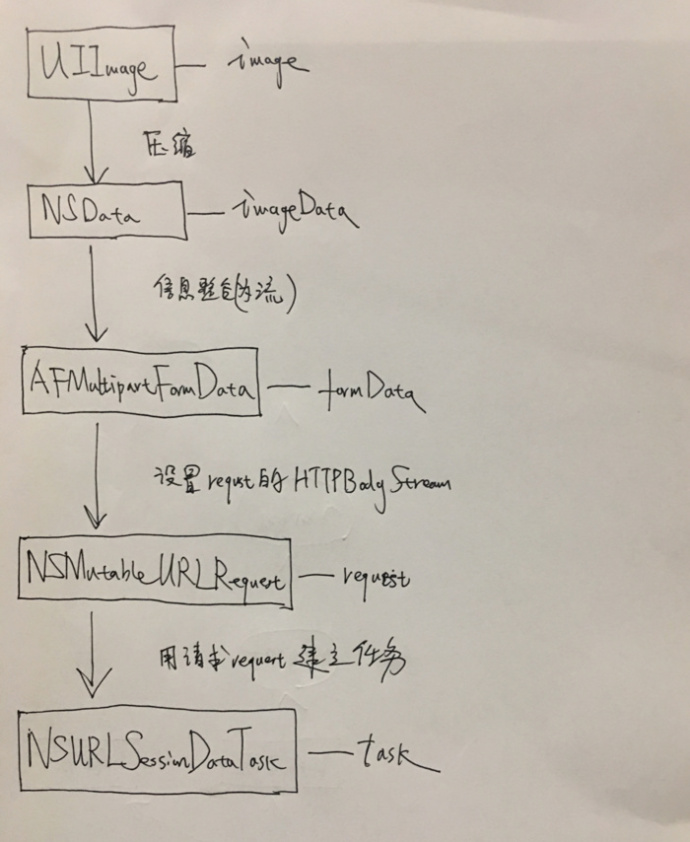 UIImage — image
压缩
NSData — imageData
信息整合(为流)
AFMultipartFormData — formData
设置requst的HTTPBodyStream
NSMutableURLRequest — request
用请求request建立任务
NSURLSessionDataTask — task